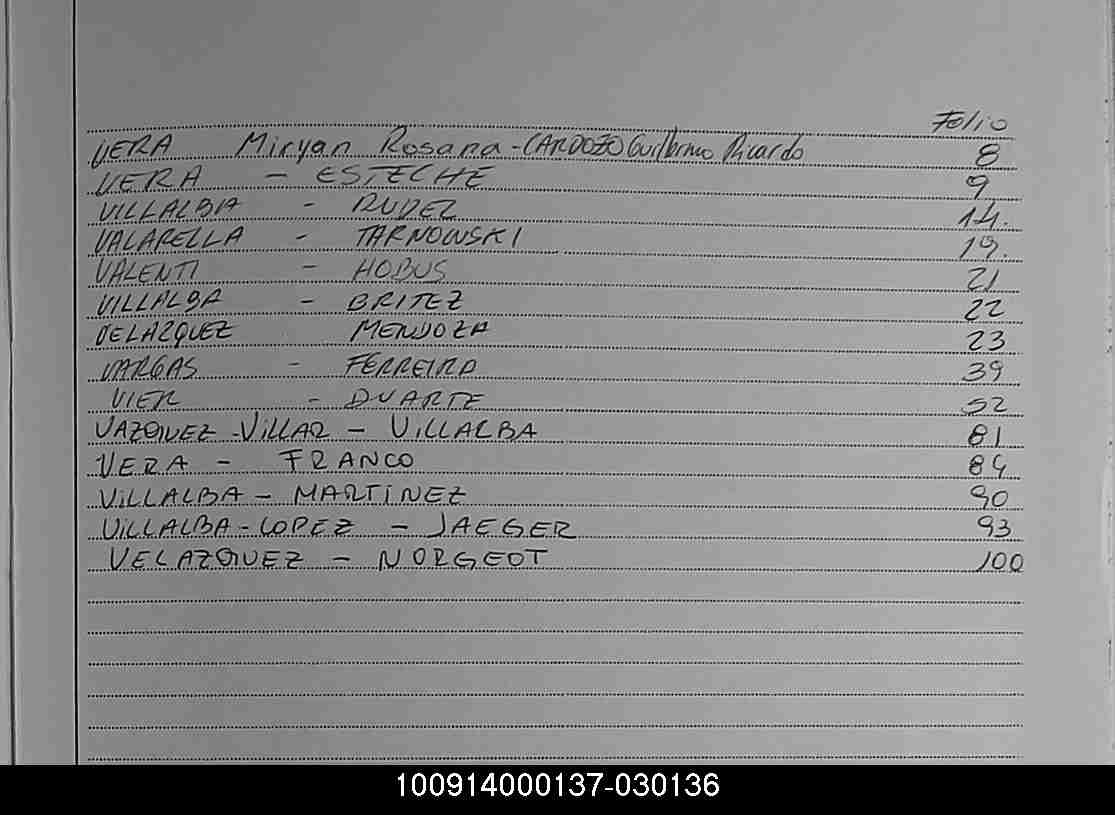 Folio
VERA Miryan Rosana - CARDOZO Guillermo Ricardo 8
VERA - ESTECHE 9
VILLALBA - RUDEL 14.
VALARELLA - TARNOWSKI 19.
VALENTI - HOBUS 21
VILLALBA - BRITEZ 22
VELAZQUEZ MENDOZA 23
VARGAS - FERREIRA 39
VIER - DUARTE 52
VAZQUEZ - VILLAR - VILLALBA 81
VERA - FRANCO 84
VILLALBA - MARTINEZ 90
VILLALBA - LOPEZ - JAEGER 93
VELAZQUEZ - NORGEOT 100
100914000137-030136